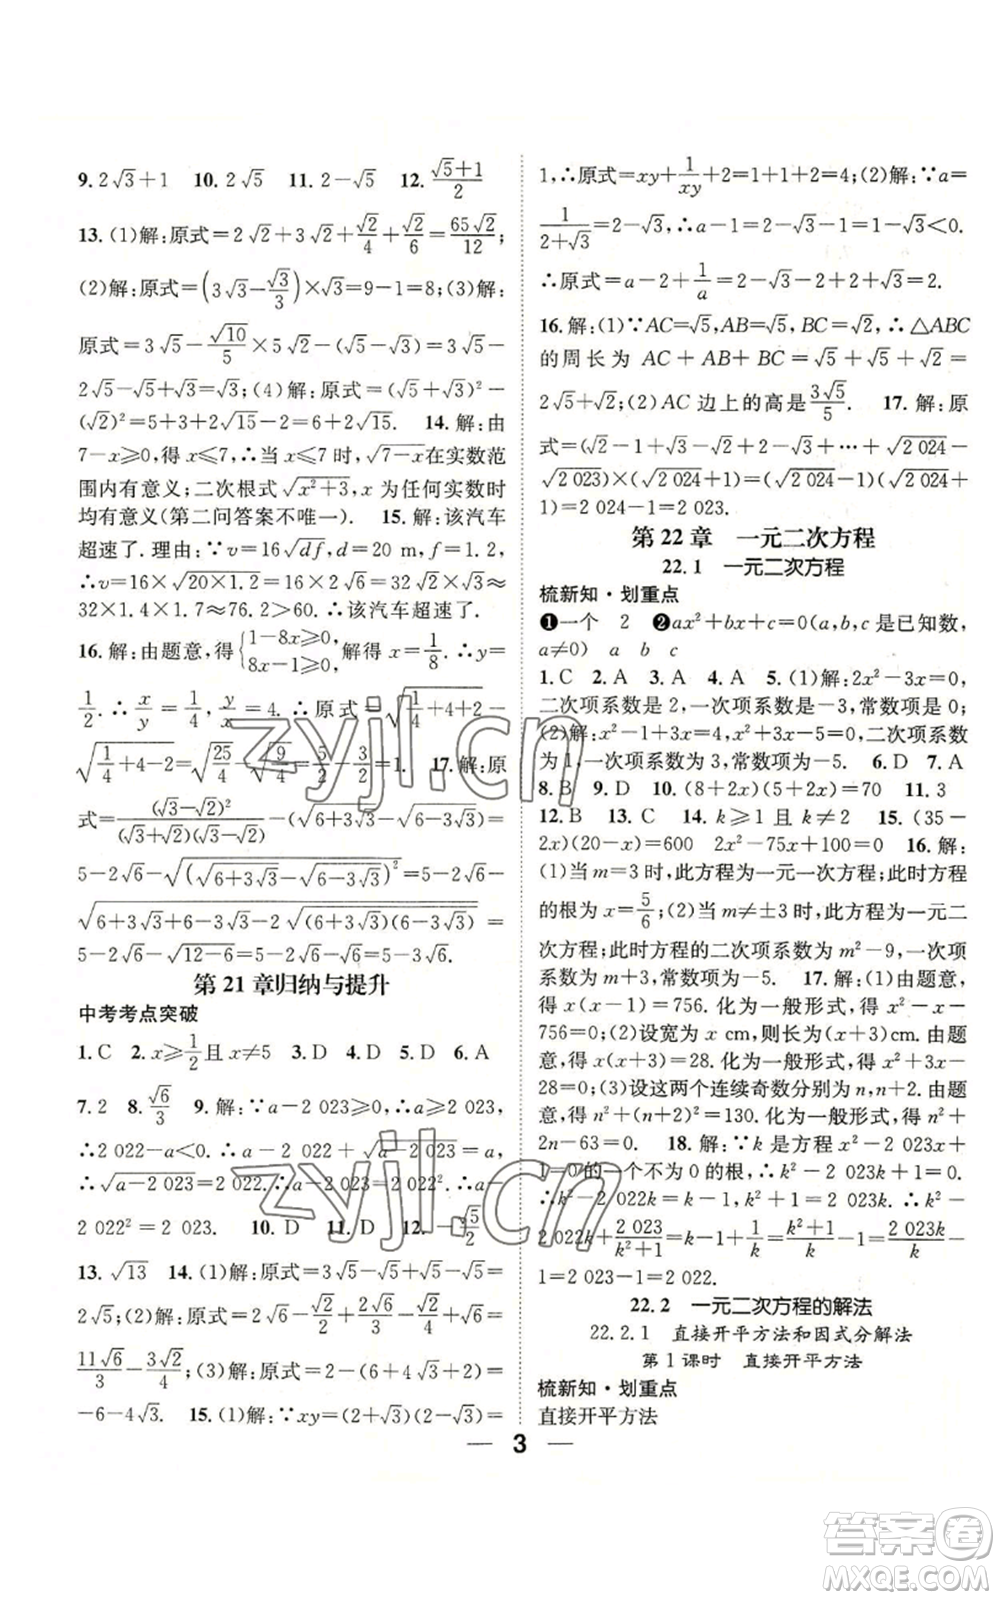 9. 2√3+1  10. 2√5  11. 2-√5  12. (√5+1)/2
13. (1)解:原式=2√2+3√2+√2/4+√2/6=65√2/12;
(2)解:原式=(3√3-√3/3)×√3=9-1=8;(3)解:
原式=3√5-√10/5×5√2+√5=3√5-
2√5+√5=2√5;(4)解:原式=(√5+√3)²-
(√2)²=5+3+2√15-2=6+2√15.  14. 解:由
7-x≥0,得x≤7,∴当x≤7时,√(7-x)在实数范
围内有意义;二次根式√(x²+3),x为任何实数时
均有意义(第二问答案不唯一).  15. 解:该汽车
超速了.理由:∵v=16√(df),d=20 m,f=1.2,
∴v=16×√(20×1.2)=16×√24=32√6≈
32×1.4×1.7≈76.2>60.∴该汽车超速了.
16. 解:由题意,得{1-8x≥0, 8x-1≥0,解得x=1/8.∴y=
1/2.∴x/y=1/4,y/x=4.∴原式=√(1/4+4+2)-
√(1/4+4-2)=√(25/4)-√(9/4)=5/2-3/2=1.  17. 解:原
式=(√3-√2)²/((√3+√2)(√3-√2))-(√(6+3√3)-√(6-3√3))=
5-2√6-√((√(6+3√3)-√(6-3√3))²)=5-2√6-
√(6+3√3+6-3√3-2√((6+3√3)(6-3√3)))=
5-2√6-√(12-6)=5-2√6-√6=5-3√6.
第21章归纳与提升
中考考点突破
1. C  2. x≥1/2且x≠5  3. D  4. D  5. D  6. A
7. 2  8. √6/3  9. 解:∵a-2 023≥0,∴a≥2 023,
∴2 022-a<0.∴a-2 022+√(a-2 023)=a,
∴√(a-2 023)=2 022.∴a-2 023=2 022².∴a-
2 022²=2 023.  10. D  11. D  12. -√5/2
13. √13  14. (1)解:原式=3√5-√5+√5-√5=
2√5;(2)解:原式=2√6-√2/2+5√6/3-√2/4=
11√6/3-3√2/4;(3)解:原式=-2-(6+4√3-2)=
-6-4√3.  15. (1)解:∵xy=(2+√3)(2-√3)=
1,∴原式=xy+1/xy+2=1+1+2=4;(2)解:∵a=
1/(2+√3)=2-√3,∴a-1=2-√3-1=1-√3<0.
∴原式=a-2+1/a=2-√3-2+2+√3=2.
16. 解:(1)∵AC=√5,AB=√5,BC=√2,∴△ABC
的周长为AC+AB+BC=√5+√5+√2=
2√5+√2;(2)AC边上的高是3√5/5.  17. 解:原
式=(√2-1+√3-√2+2-√3+…+√2 024-
√2 023)×(√2 024+1)=(√2 024-1)(√2 024+
1)=2 024-1=2 023.
第22章 一元二次方程
22.1 一元二次方程
梳新知·划重点
❶一个 2 ❷ax²+bx+c=0(a,b,c是已知数,
a≠0) a b c
1. C  2. A  3. A  4. A  5. (1)解:2x²-3x=0,
二次项系数是2,一次项系数是-3,常数项是0.
(2)解:x²-1+3x-4=0,x²+3x-5=0,二次项系数
为1,一次项系数为3,常数项为-5.  6. D  7. A
8. B  9. D  10. (8+2x)(5+2x)=70  11. 3
12. B  13. C  14. k≥1且k≠2  15. (35-
2x)(20-x)=600 2x²-75x+100=0  16. 解:
(1)当m=3时,此方程为一元一次方程;此时方程
的根为x=5/6;(2)当m≠±3时,此方程为一元二
次方程;此时方程的二次项系数为m²-9,一次项
系数为m+3,常数项为-5.  17. 解:(1)由题意,
得x(x-1)=756.化为一般形式,得x²-x-
756=0;(2)设宽为x cm,则长为(x+3)cm.由题
意,得x(x+3)=28.化为一般形式,得x²+3x-
28=0;(3)设这两个连续奇数分别为n,n+2.由题
意,得n²+(n+2)²=130.化为一般形式,得n²+
2n-63=0.  18. 解:∵k是方程x²-2 023x+
1=0的一个不为0的根,∴k²-2 023k+1=0.
∴k²-2 022k=k-1,k²+1=2 023k.∴k²-
2 022k+2 023/(k²+1)=k-1+1/k=(k²+1)/k-1=2 023k/k-
1=2 023-1=2 022.
22.2 一元二次方程的解法
22.2.1 直接开平方法和因式分解法
第1课时 直接开平方法
梳新知·划重点
直接开平方法
3
zyjl.cn
zyjl.cn
答案卷
MXQE.COM